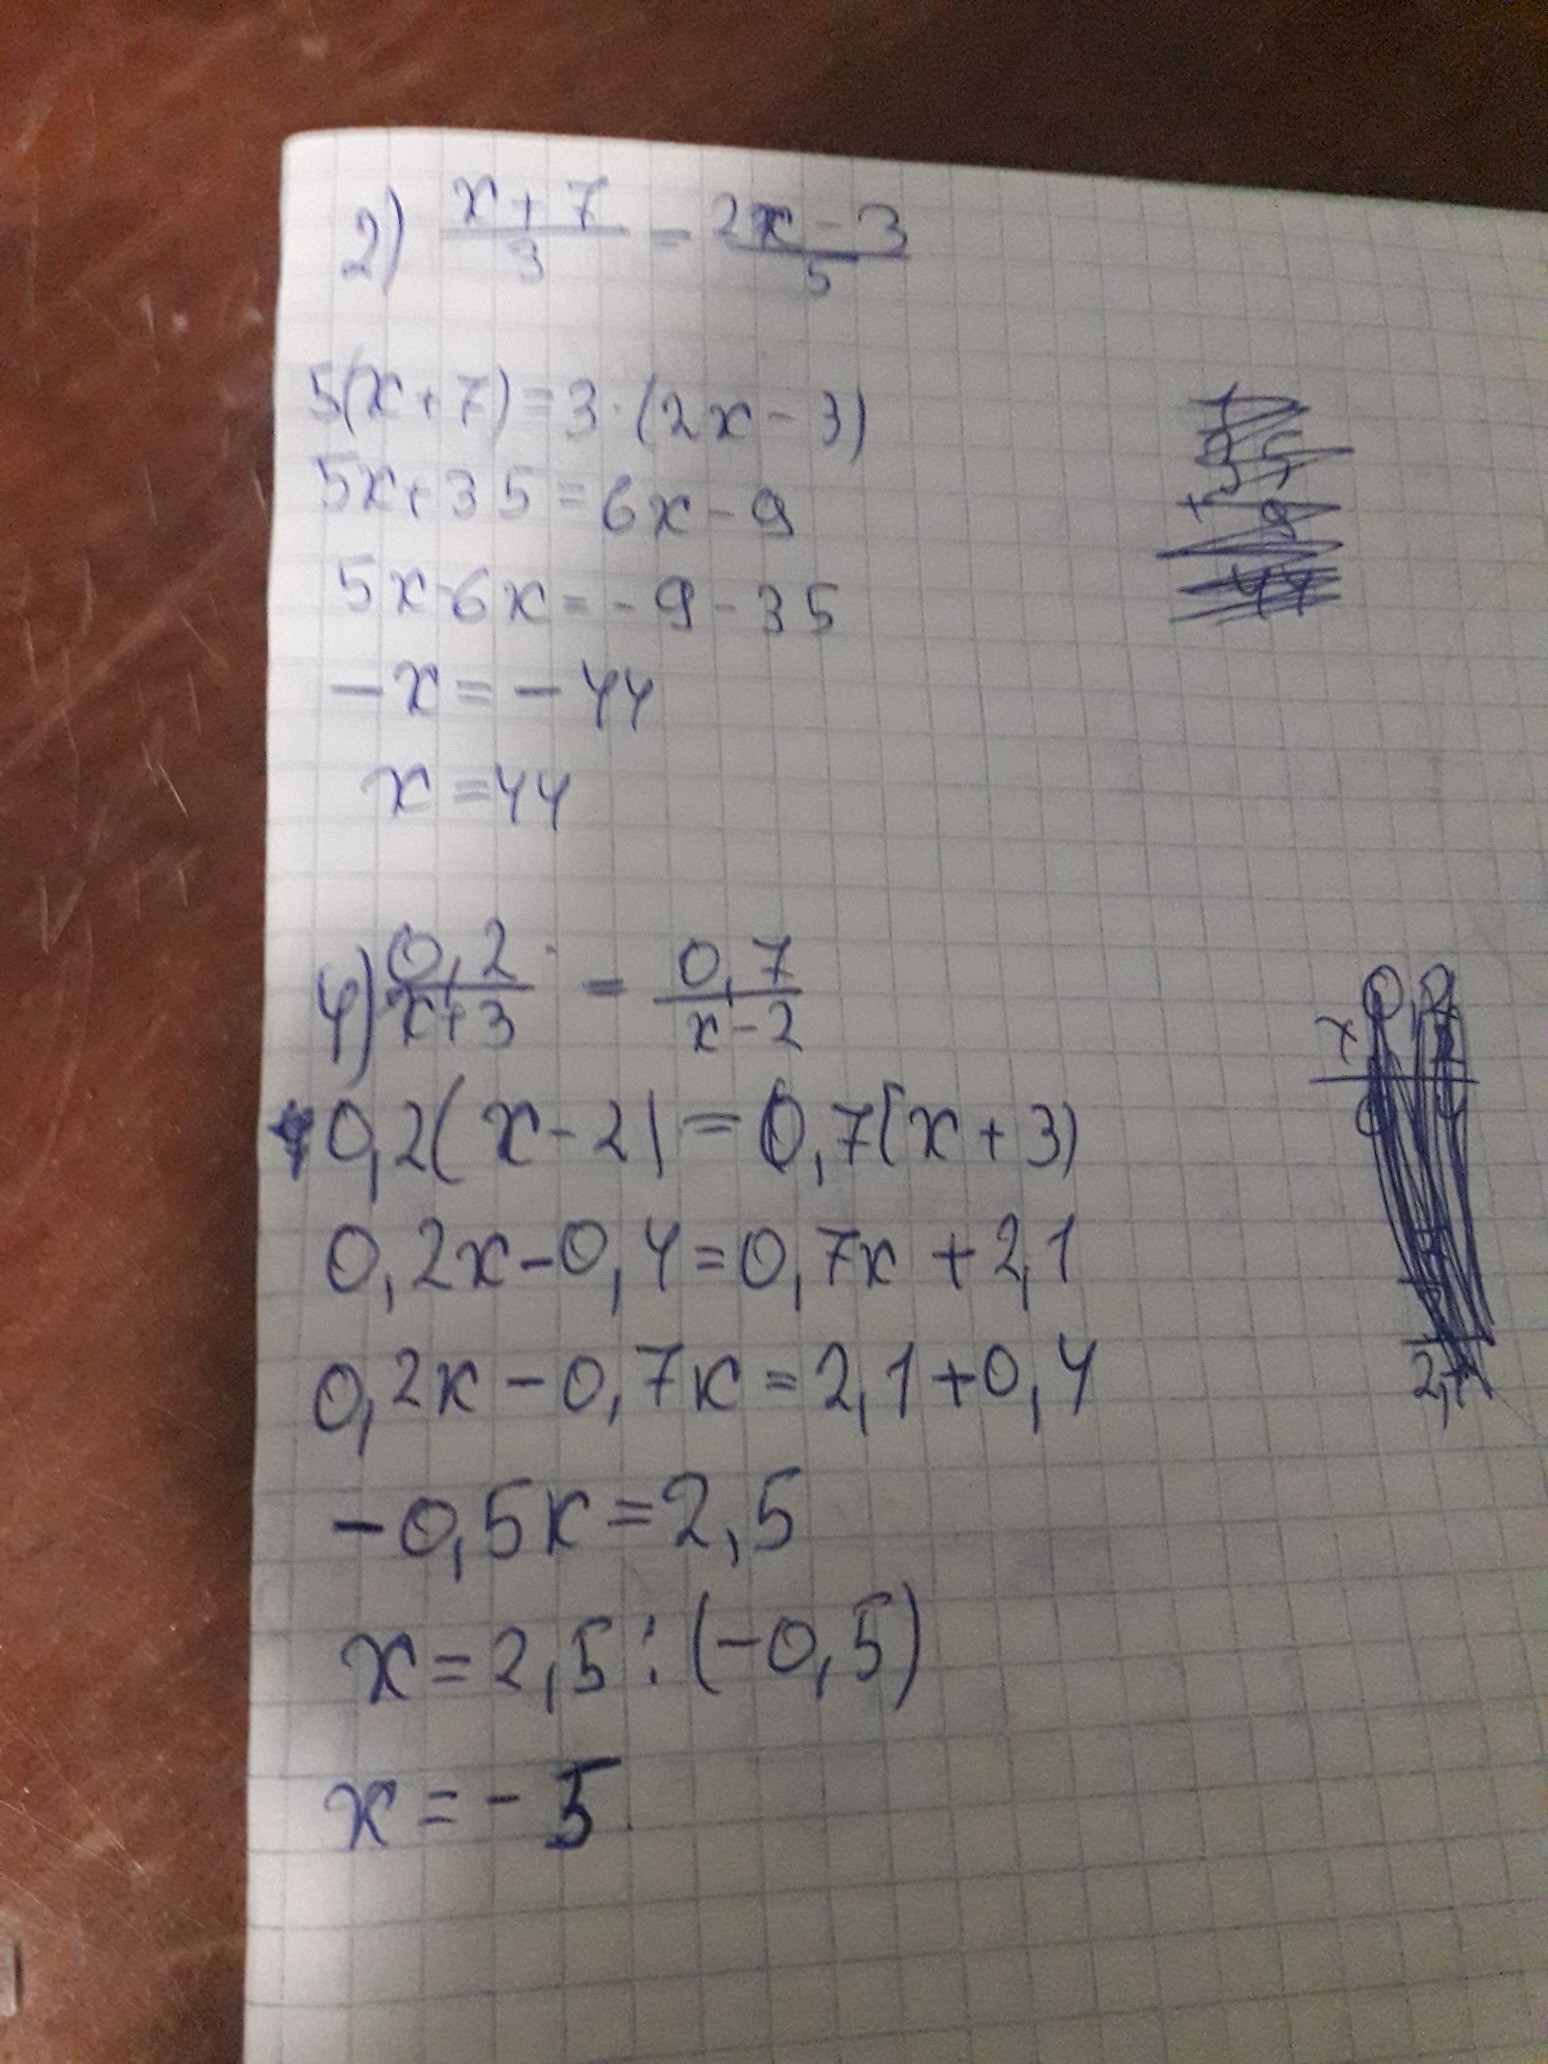 2) x+7/3 = 2x-3/5
5(x+7)=3·(2x-3)
5x+35=6x-9
5x-6x=-9-35
-x=-44
x=44
4) 0,2/x+3 = 0,7/x-2
0,2(x-2)=0,7(x+3)
0,2x-0,4=0,7x+2,1
0,2x-0,7x=2,1+0,4
-0,5x=2,5
x=2,5:(-0,5)
x=-5